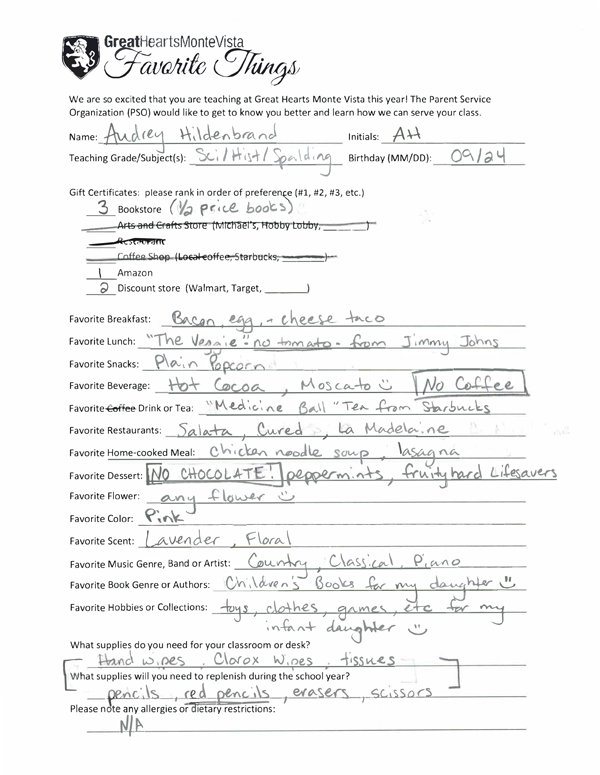 GreatHeartsMonteVista
Favorite Things
We are so excited that you are teaching at Great Hearts Monte Vista this year! The Parent Service
Organization (PSO) would like to get to know you better and learn how we can serve your class.
Name: Audrey Hildenbrand Initials: AH
Teaching Grade/Subject(s): Sci/Hist/Spalding Birthday (MM/DD): 09/24
Gift Certificates: please rank in order of preference (#1, #2, #3, etc.)
3 Bookstore (1/2 price books)
Arts and Crafts Store (Michael's, Hobby Lobby, ________)
Restaurant
Coffee Shop (Local coffee, Starbucks, ________)
1 Amazon
2 Discount store (Walmart, Target, ________)
Favorite Breakfast: Bacon, egg, + cheese taco
Favorite Lunch: "The Veggie" - no tomato - from Jimmy Johns
Favorite Snacks: Plain Popcorn
Favorite Beverage: Hot Cocoa, Moscato ☺ No Coffee
Favorite Coffee Drink or Tea: "Medicine Ball" Tea from Starbucks
Favorite Restaurants: Salata, Cured, La Madelaine
Favorite Home-cooked Meal: Chicken noodle soup, lasagna
Favorite Dessert: NO CHOCOLATE! peppermints, fruity hard Lifesavers
Favorite Flower: any flower ☺
Favorite Color: Pink
Favorite Scent: Lavender, Floral
Favorite Music Genre, Band or Artist: Country, Classical, Piano
Favorite Book Genre or Authors: Children's Books for my daughter ☺
Favorite Hobbies or Collections: toys, clothes, games, etc for my
infant daughter ☺
What supplies do you need for your classroom or desk?
Hand wipes, Clorox Wipes, tissues
What supplies will you need to replenish during the school year?
pencils, red pencils, erasers, scissors
Please note any allergies or dietary restrictions:
N/A